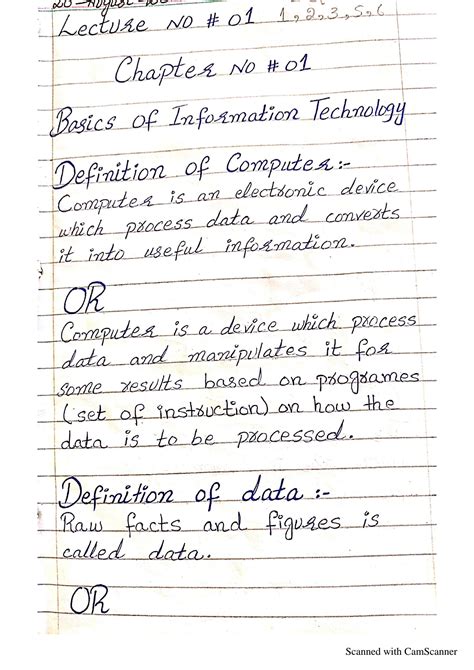 Lecture NO # 01 1,2,3,5,6
Chapter NO # 01
Basics of Information Technology
Definition of Computer:-
Computer is an electronic device
which process data and converts
it into useful information.
OR
Computer is a device which process
data and manipulates it for
some results based on programes
(set of instruction) on how the
data is to be processed.
Definition of data :-
Raw facts and figures is
called data.
OR
Scanned with CamScanner